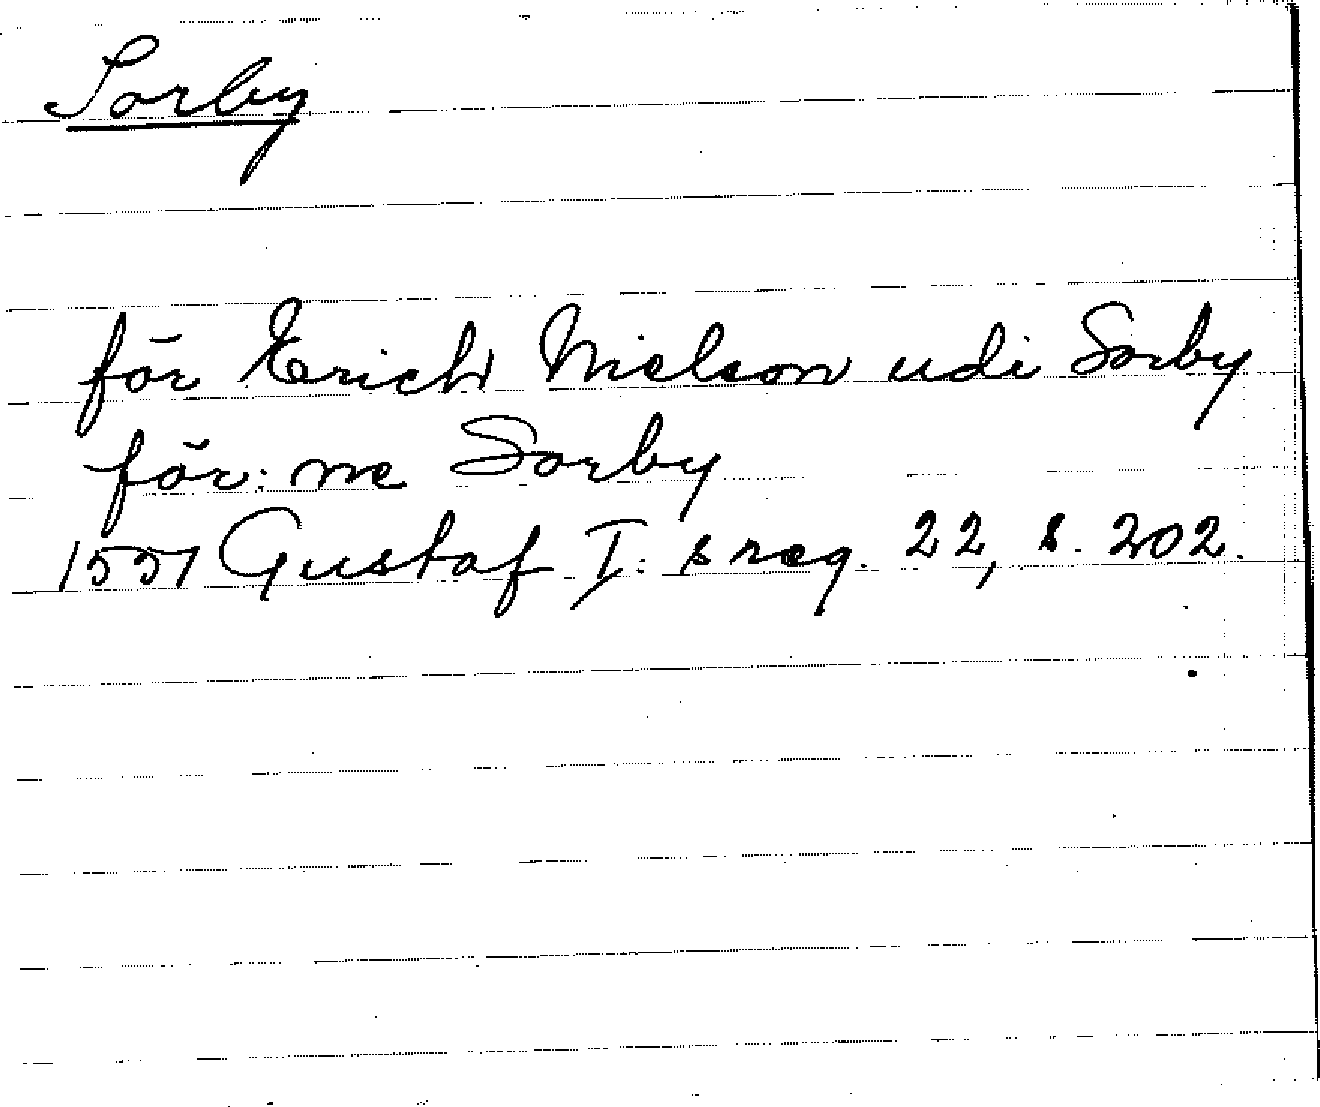 Sorby
för Erich Nielson udi Sorby
för: ne Sorby
1557 Gustaf I: s reg. 22, s. 202.